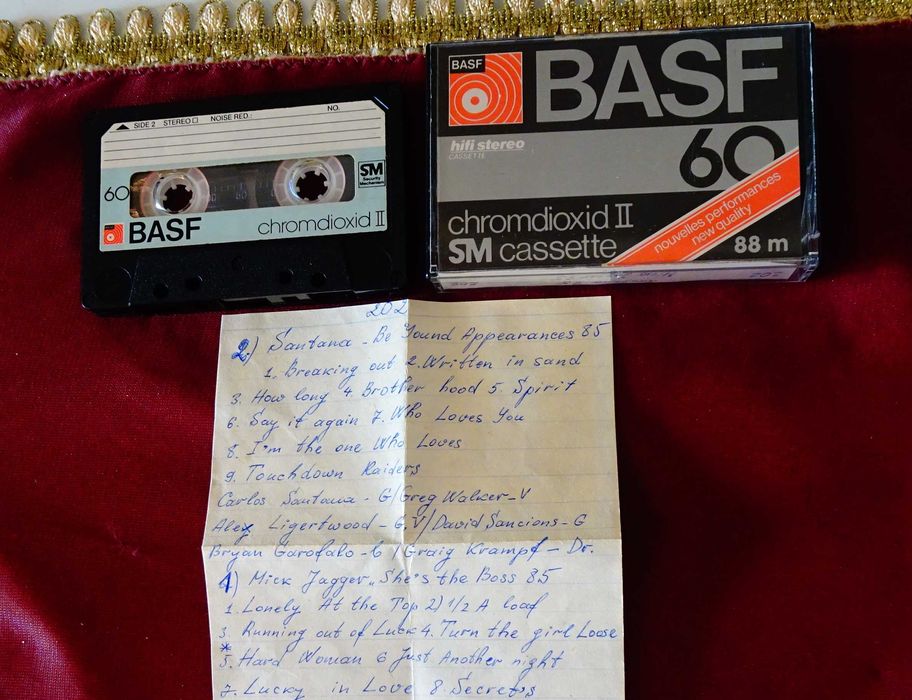 SIDE 2 STEREO NOISE RED.: NO.
60
SM
Security
Mechanism
BASF chromdioxid II
BASF
BASF
60
hifi stereo
CASSETTE
chromdioxid II
SM cassette
nouvelles performances
new quality
88 m
202
2.) Santana - Be Yound Appearances 85
1. Breaking out 2. Written in sand
3. How long 4. Brother hood 5. Spirit
6. Say it again 7. Who Loves You
8. I'm the one Who Loves
9. Touchdown Raiders
Carlos Santana - G/Greg Walker - V
Alex Ligertwood - G,V/David Sancions - G
Bryan Garofalo - G /Graig Krampf - Dr.
1) Mick Jagger „She's the Boss 85
1. Lonely At the Top 2) 1/2 A loaf
3. Running out of Luck 4. Turn the girl Loose
* 5. Hard Woman 6 Just Another night
7. Lucky in Love 8. Secrets